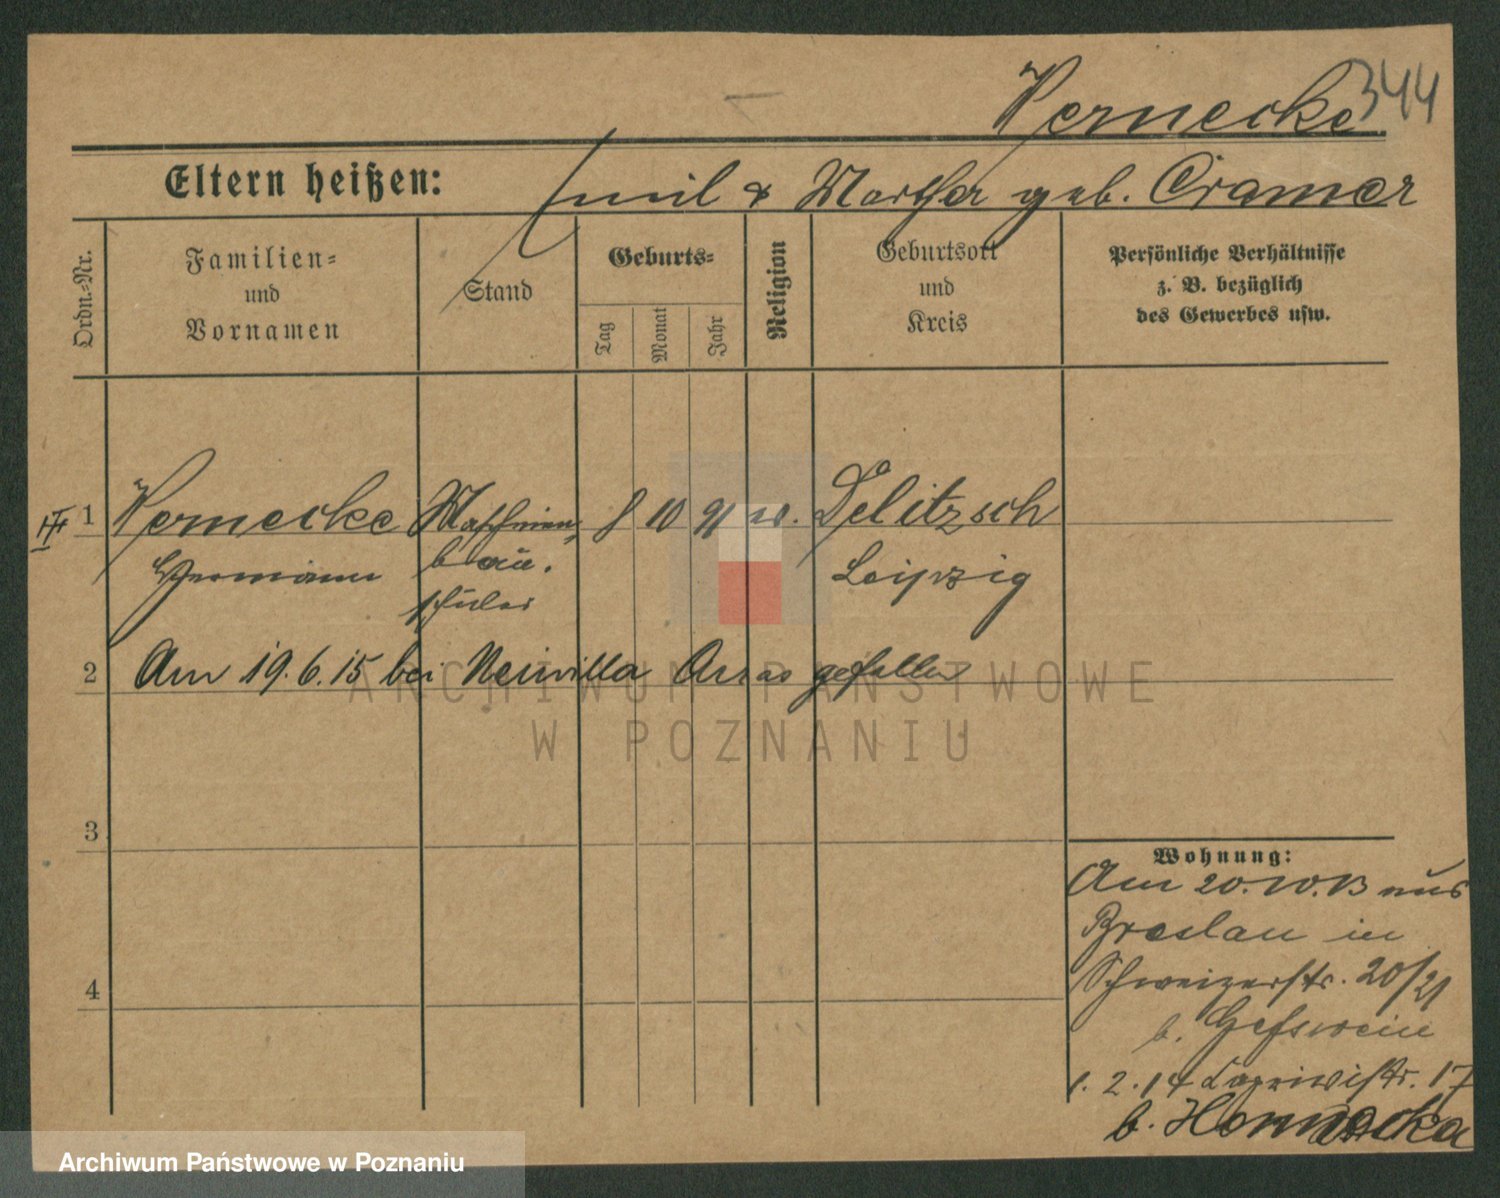 344
Wernecke
Eltern heißen: Emil & Martha geb. Cramer
Ordn.-Nr.
Familien-
und
Vornamen
Stand
Geburts-
Tag
Monat
Jahr
Religion
Geburtsort
und
Kreis
Persönliche Verhältnisse
z. B. bezüglich
des Gewerbes usw.
1 Wernecke Maschinen 8 10 91 Delitzsch
Hermann bau. Leipzig
schüler
2 Am 19.6.15 bei Neuvilla Arras gefallen
3
4
Wohnung:
Am 20.10.13 aus
Breslau in
Schweizerstr. 20/21
b.
1.2.14 Capriviistr. 17
b.
ARCHIWUM PAŃSTWOWE
W POZNANIU
Archiwum Państwowe w Poznaniu